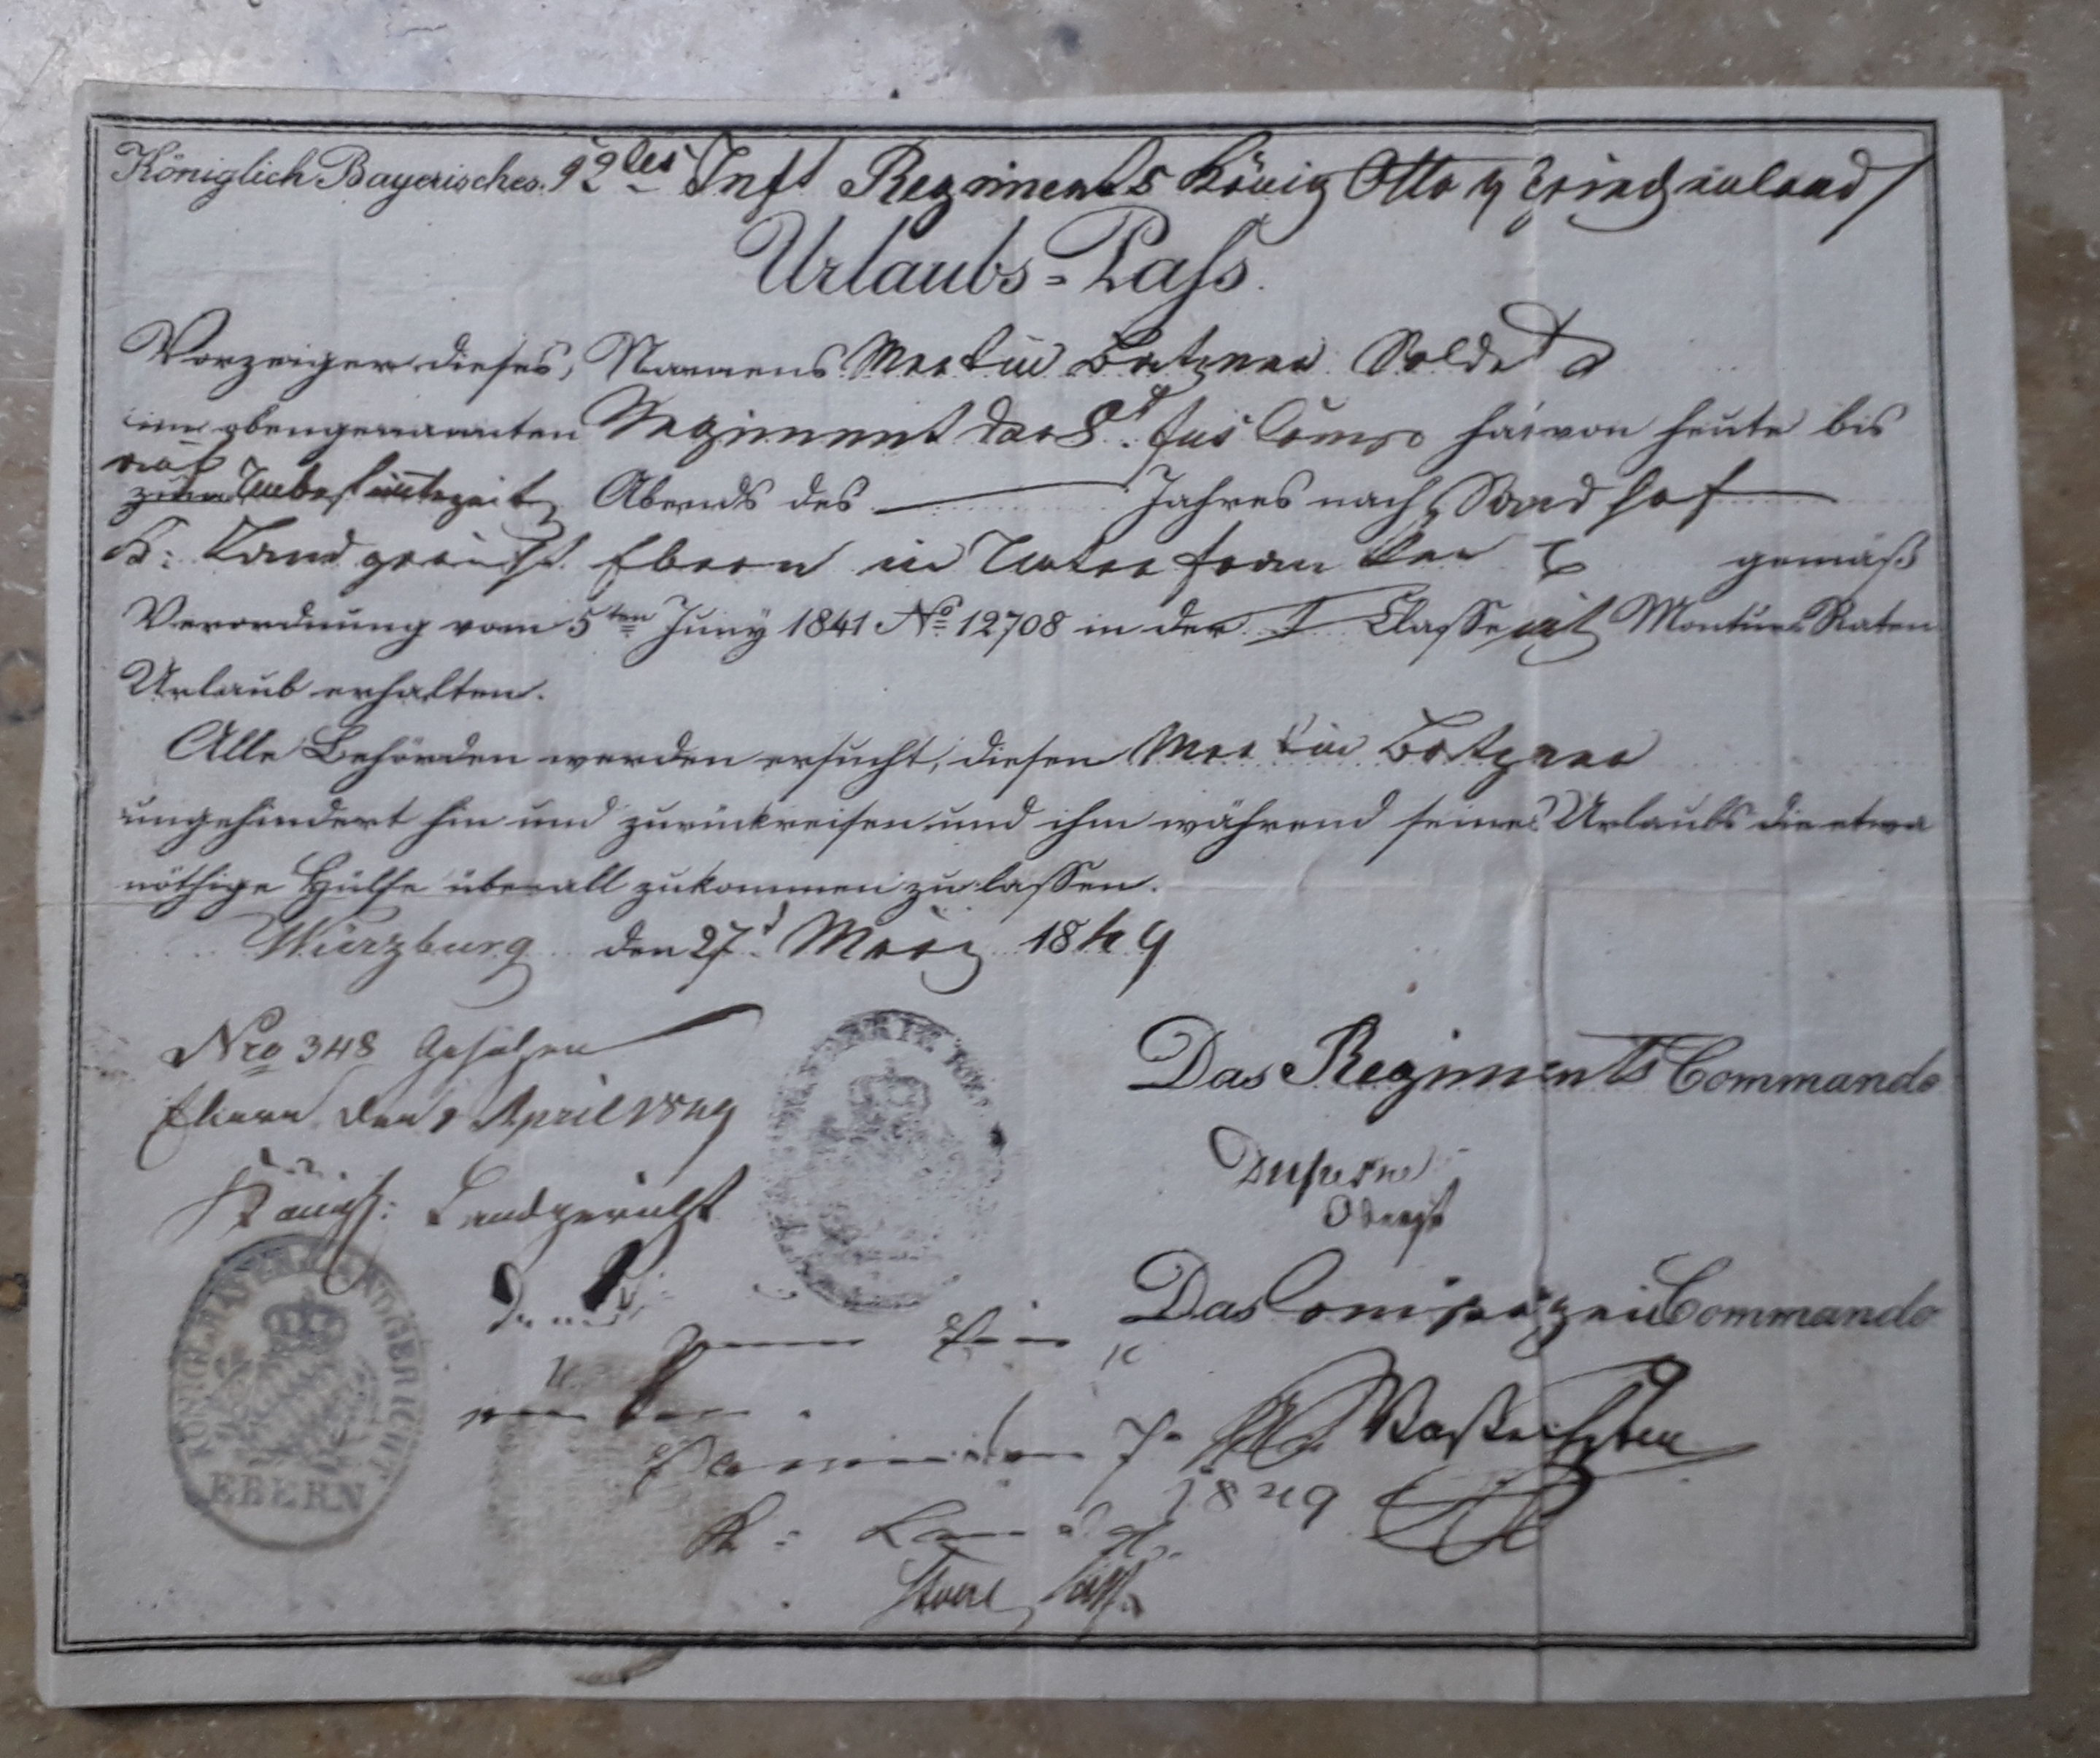 Königlich Bayerisches 12tes Inft Regiments König Otto v Griechenland
Urlaubs-Paß.
Vorzeiger dieses, Namens Martin Batzner Soldat
im obengenannten Regiment der 8t Füs Comp hat von heute bis
auf
zum Unbestimtezeit Abends des Jahres nach Sandhof
K: Landgericht Ebern in Unterfranken gemäß
Verordnung vom 5ten Juny 1841 No 12708 in der I Classe mit Monturs Raten
Urlaub erhalten.
Alle Behörden werden ersucht, diesen Martin Batzner
ungehindert hin und zurückreisen und ihm während seines Urlaubs die etwa
nöthige Hülfe überall zukommen zu lassen.
Würzburg den 27t März 1849
Nro 348 Gesehen
Ebern den April 1849
Königl: Landgericht
Das Regiments Commando
Oberst
Das Compagnie Commando
1849
KÖNIGL. BAYER. LANDGERICHT
EBERN
K: Landg.